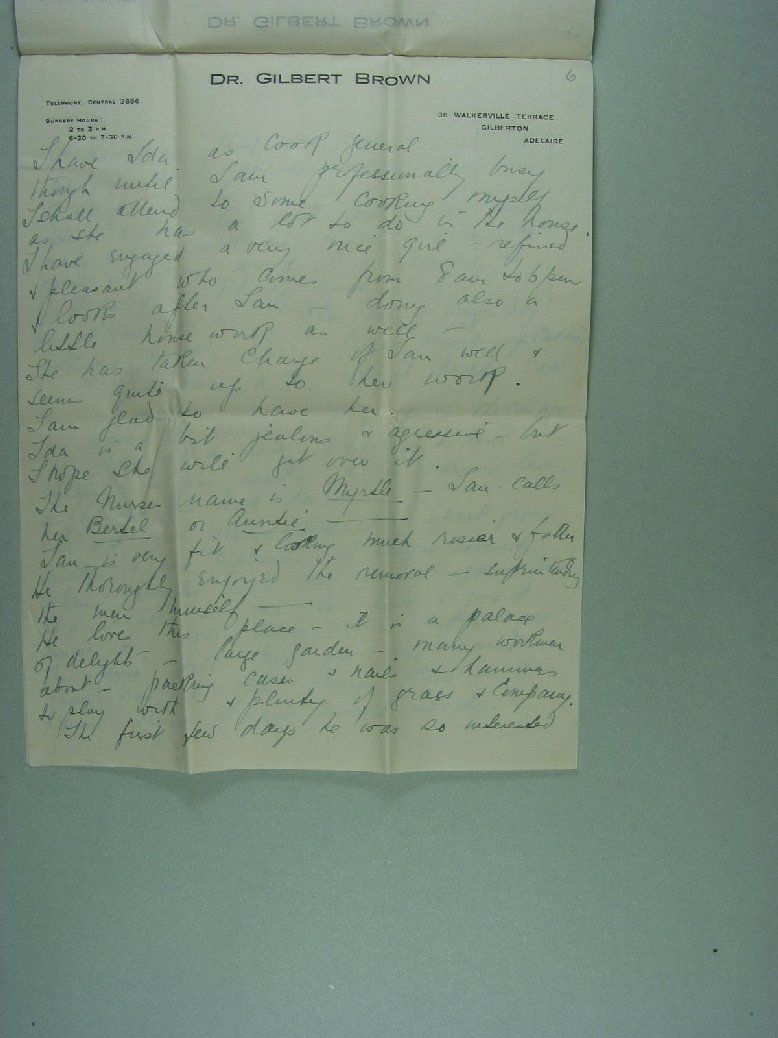 DR. GILBERT BROWN
6
TELEPHONE, CENTRAL 3866
SURGERY HOURS:
2 TO 3 P.M.
6-30 TO 7-30 P.M.
36 WALKERVILLE TERRACE
GILBERTON
ADELAIDE
I have Ida as cook general -
though until I am professionally busy
I shall attend to some cooking myself
as she has a lot to do in the house.
I have engaged a very nice girl - refined
& pleasant who comes from 8 am to 6 pm
& looks after Ian - doing also a
little house work as well -
She has taken charge of Ian well &
seems quite up to her work.
I am glad to have her.
Ida is a bit jealous & agressive - but
I hope she will get over it.
The Nurses name is Myrtle - Ian calls
her Bertel or Auntie -
Ian is very fit & looking much rosier & fuller
He thoroughly enjoyed the removal - superintending
the men himself -
He loves this place - it is a palace
of delights - large garden - many workmen
about - packing cases & nails & hammers
to play with & plenty of grass & Company.
The first few days he was so interested